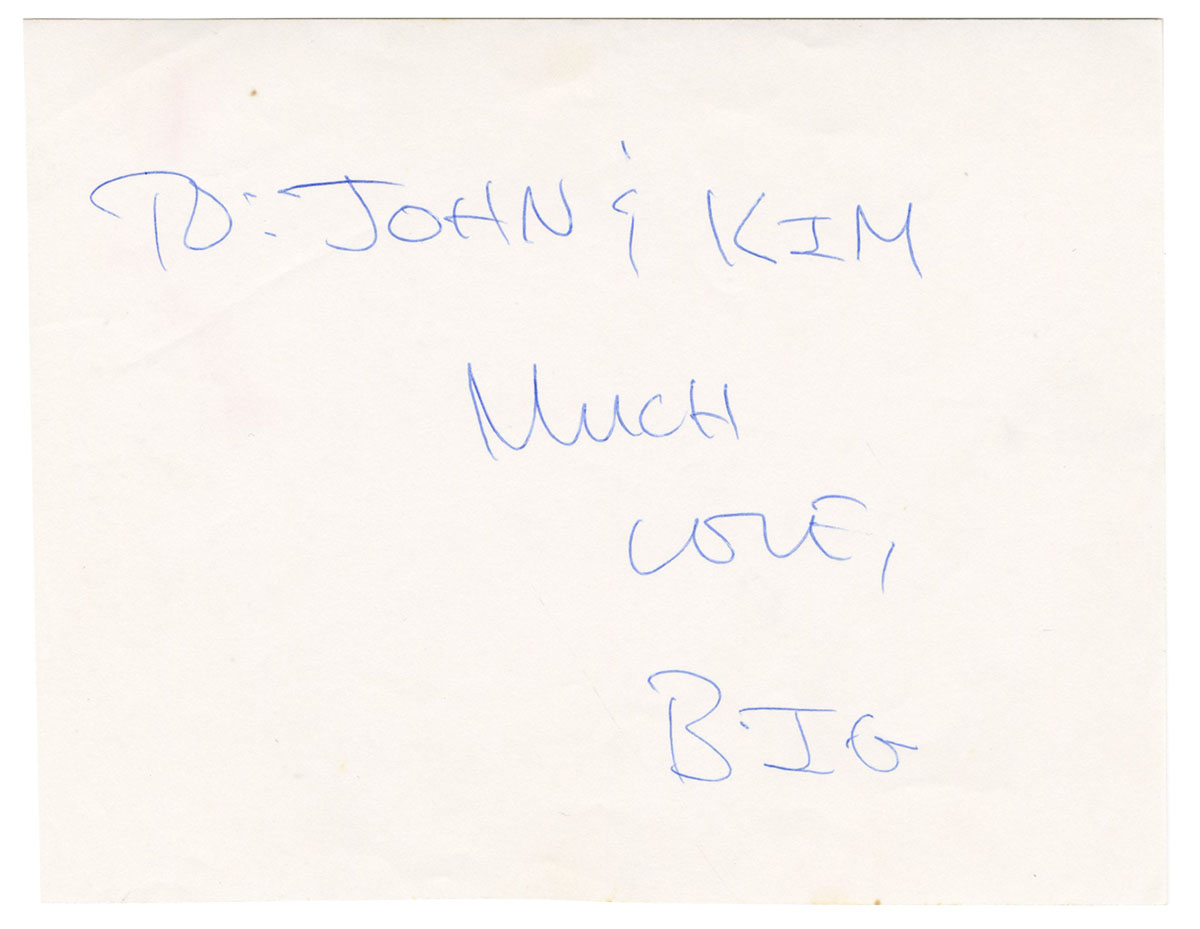 To: JOHN & KIM
MUCH
LOVE,
BIG